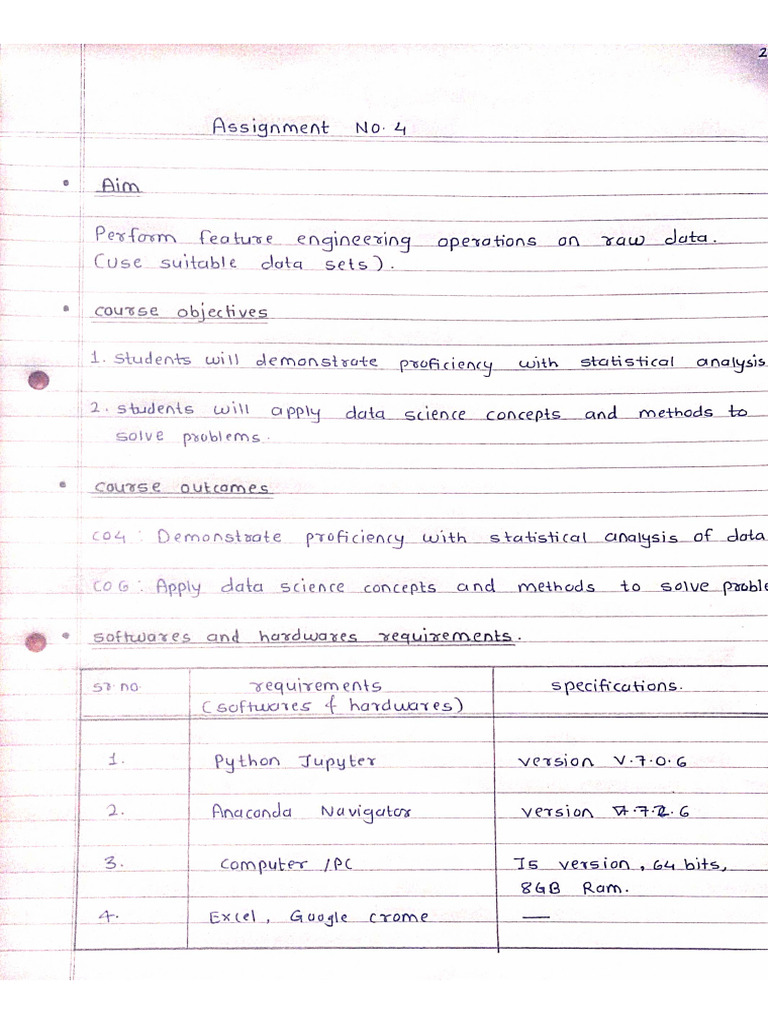 2
Assignment No. 4
• Aim
Perform feature engineering operations on raw data.
(use suitable data sets).
• course objectives
1. students will demonstrate proficiency with statistical analysis
2. students will apply data science concepts and methods to
solve problems.
• course outcomes
CO4 : Demonstrate proficiency with statistical analysis of data
CO6 : Apply data science concepts and methods to solve proble
• softwares and hardwares requirements.
sr no. requirements specifications.
(softwares & hardwares)
1. Python Jupyter version V.7.0.6
2. Anaconda Navigator version
3. computer /PC I5 version, 64 bits,
8GB Ram.
4. Excel, Google crome —